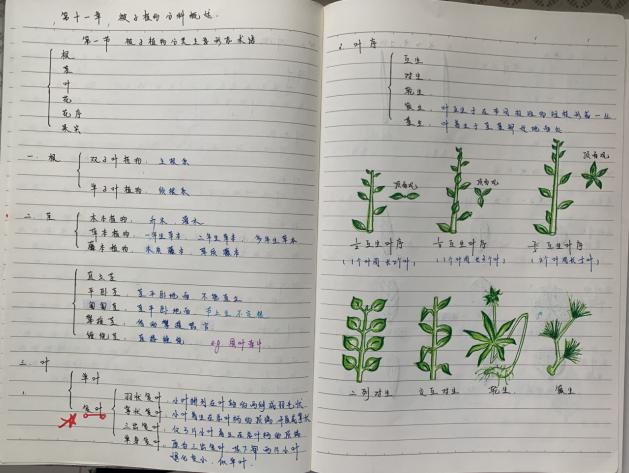 第十一章，被子植物分科概述.
第一节 被子植物分类主要形态术语
根
茎
叶
花
花序
果实
一、根
双子叶植物：主根系
单子叶植物：须根系
二、茎
木本植物：乔木 灌木
草本植物：一年生草本，二年生草本，多年生草本
藤本植物：木质藤本，草质藤本
直立茎
平卧茎：茎平卧地面 不能直立
匍匐茎：茎平卧地面 节上生不定根
攀缘茎：
缠绕茎：茎 缠绕 eg
三、叶
单叶
复叶
羽状复叶：小叶排列在叶轴的两侧成羽毛状
掌状复叶：小叶着生在总叶柄的顶端
三出复叶：仅3片小叶着生在总叶柄的顶端
单身复叶：
退化变小，似单叶.
2. 叶序
互生
对生
轮生
簇生：叶
基生：叶着生于茎基部近地面处
顶面观
顶面观
顶面观
1/2 互生叶序
1/3 互生叶序
2/5 互生叶序
（1个叶周长2个叶）
（1个叶周长3个叶）
（2个叶周长5个叶）
二列对生
交互对生
轮生
簇生